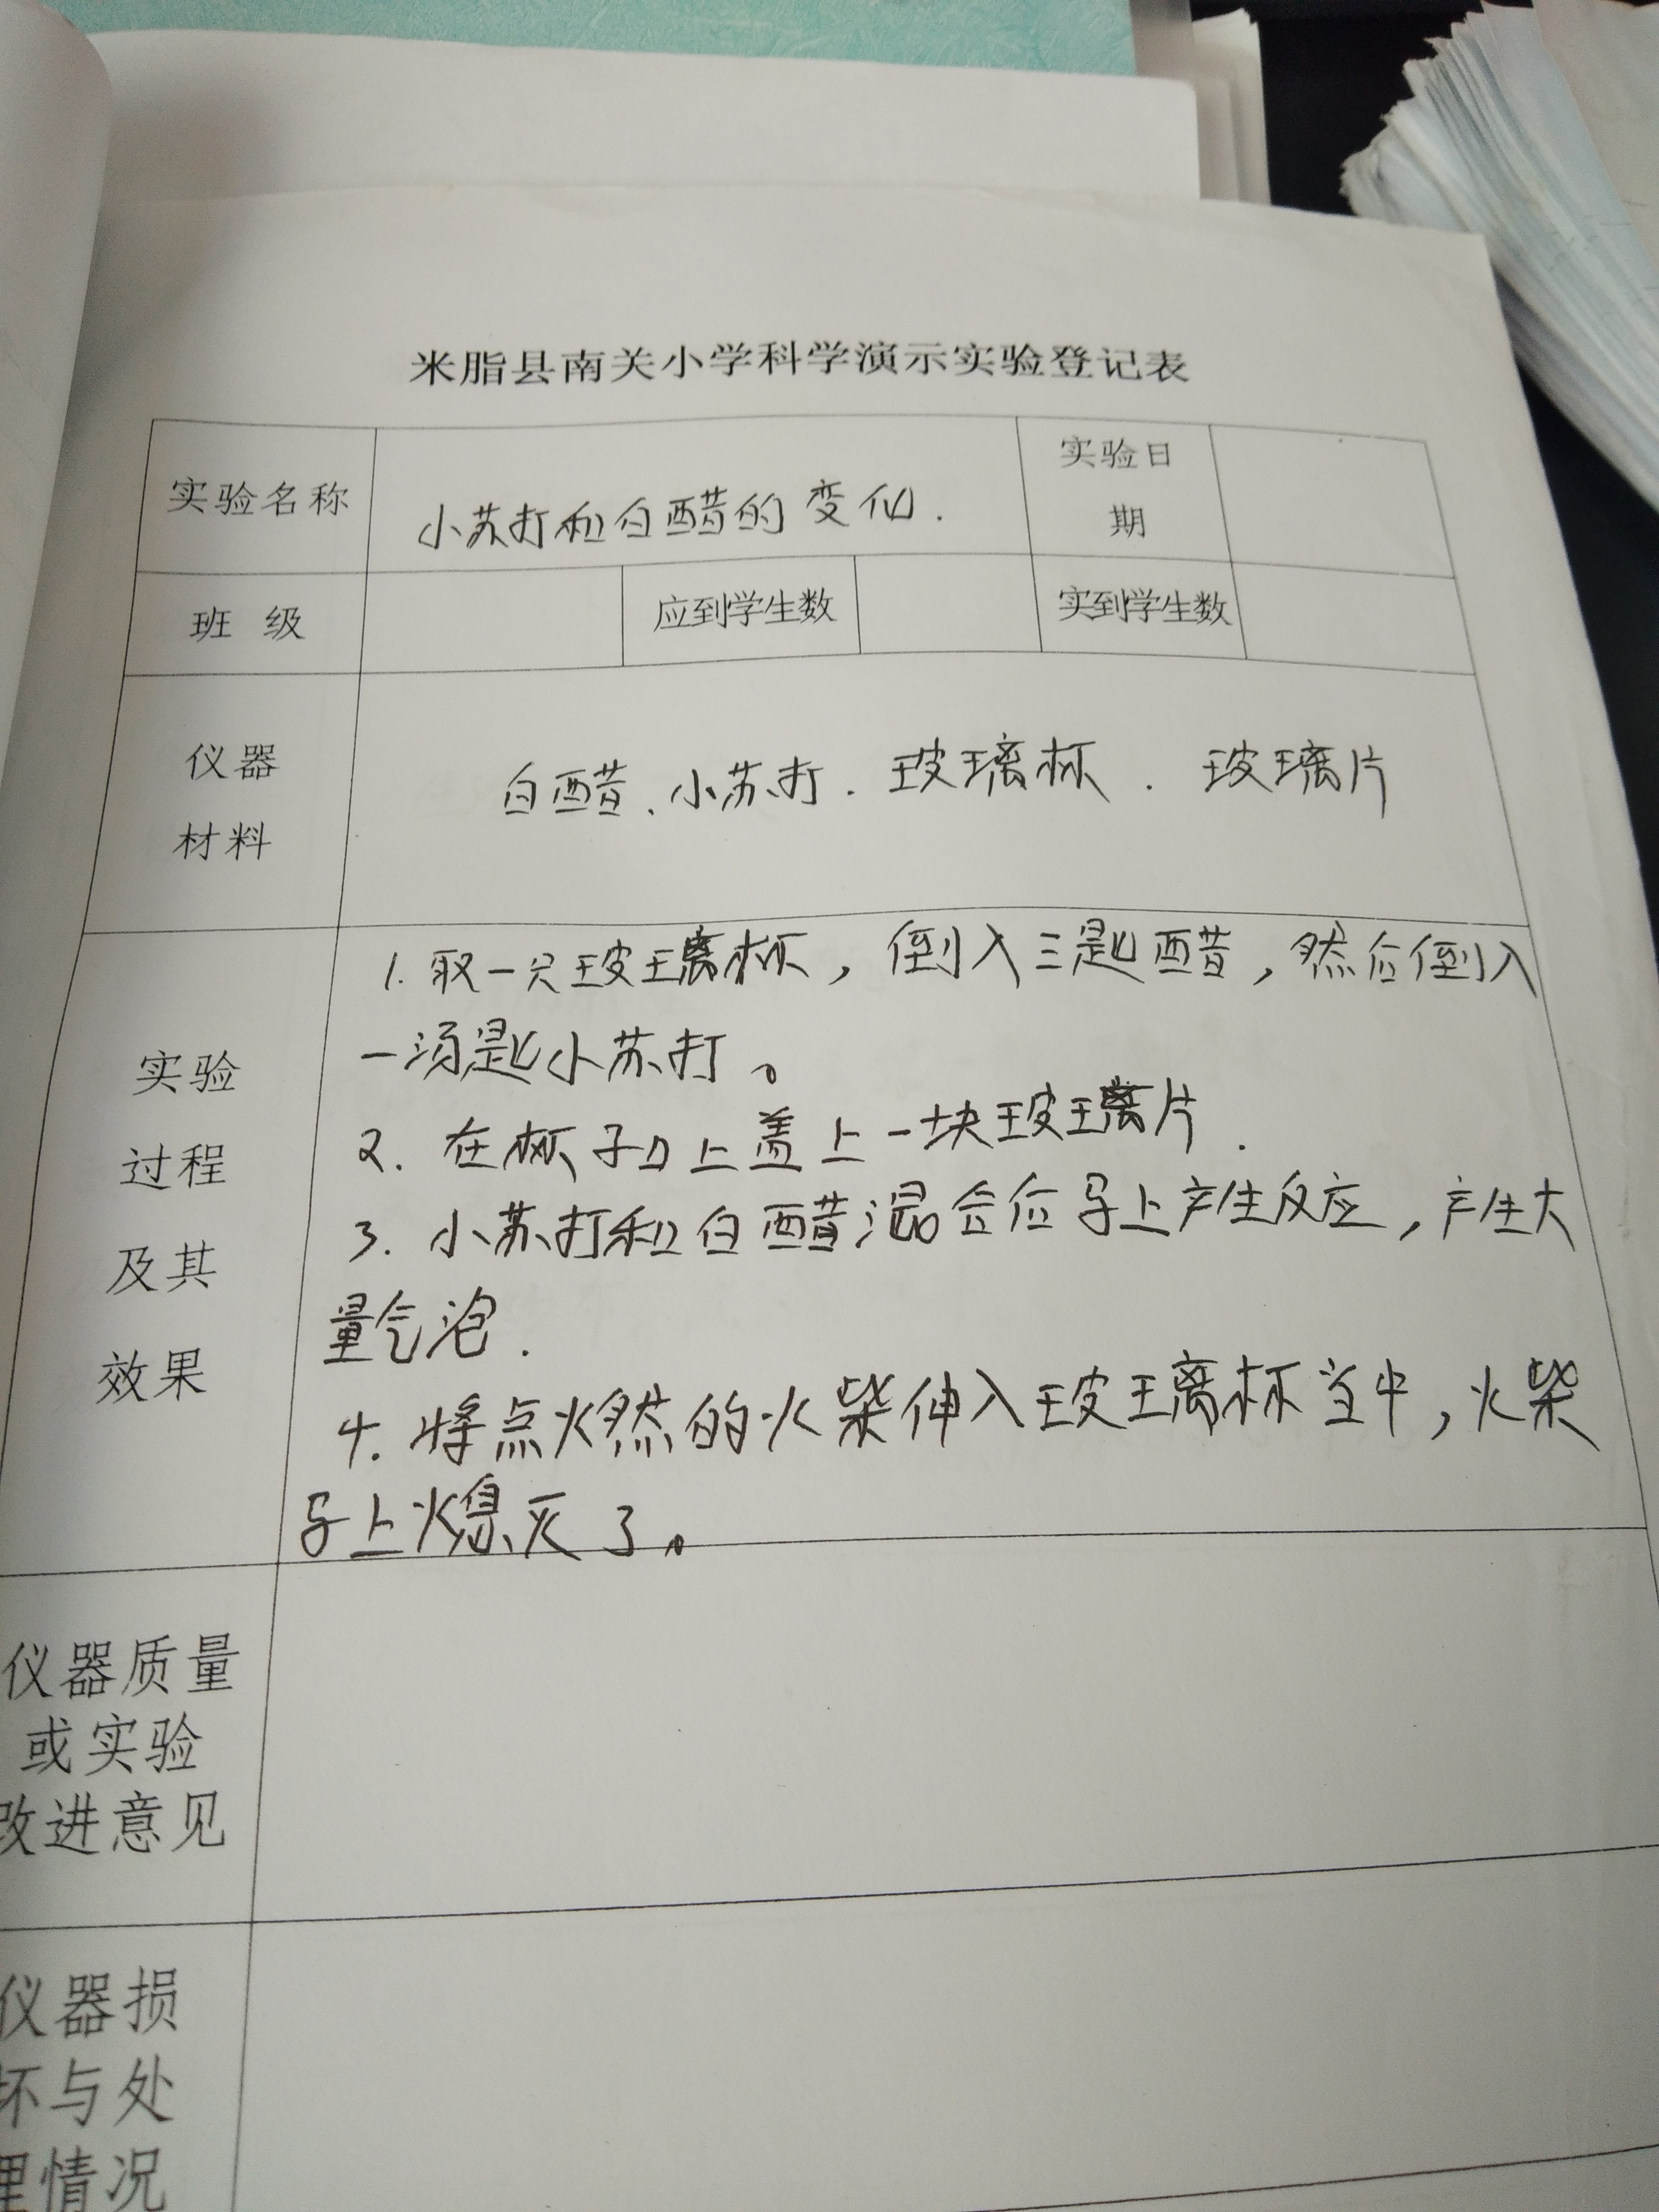 米脂县南关小学科学演示实验登记表
实验名称
小苏打和白醋的变化.
实验日
期
班 级
应到学生数
实到学生数
仪器
材料
白醋、小苏打.玻璃杯.玻璃片
实验
过程
及其
效果
1.取一只玻璃杯，倒入三匙醋，然后倒入
一汤匙小苏打。
2.在杯子口上盖上一块玻璃片.
3.小苏打和白醋混合后马上产生反应，产生大
量气泡.
4.将点燃的火柴伸入玻璃杯当中，火柴
马上熄灭了。
仪器质量
或实验
改进意见
仪器损
坏与处
理情况